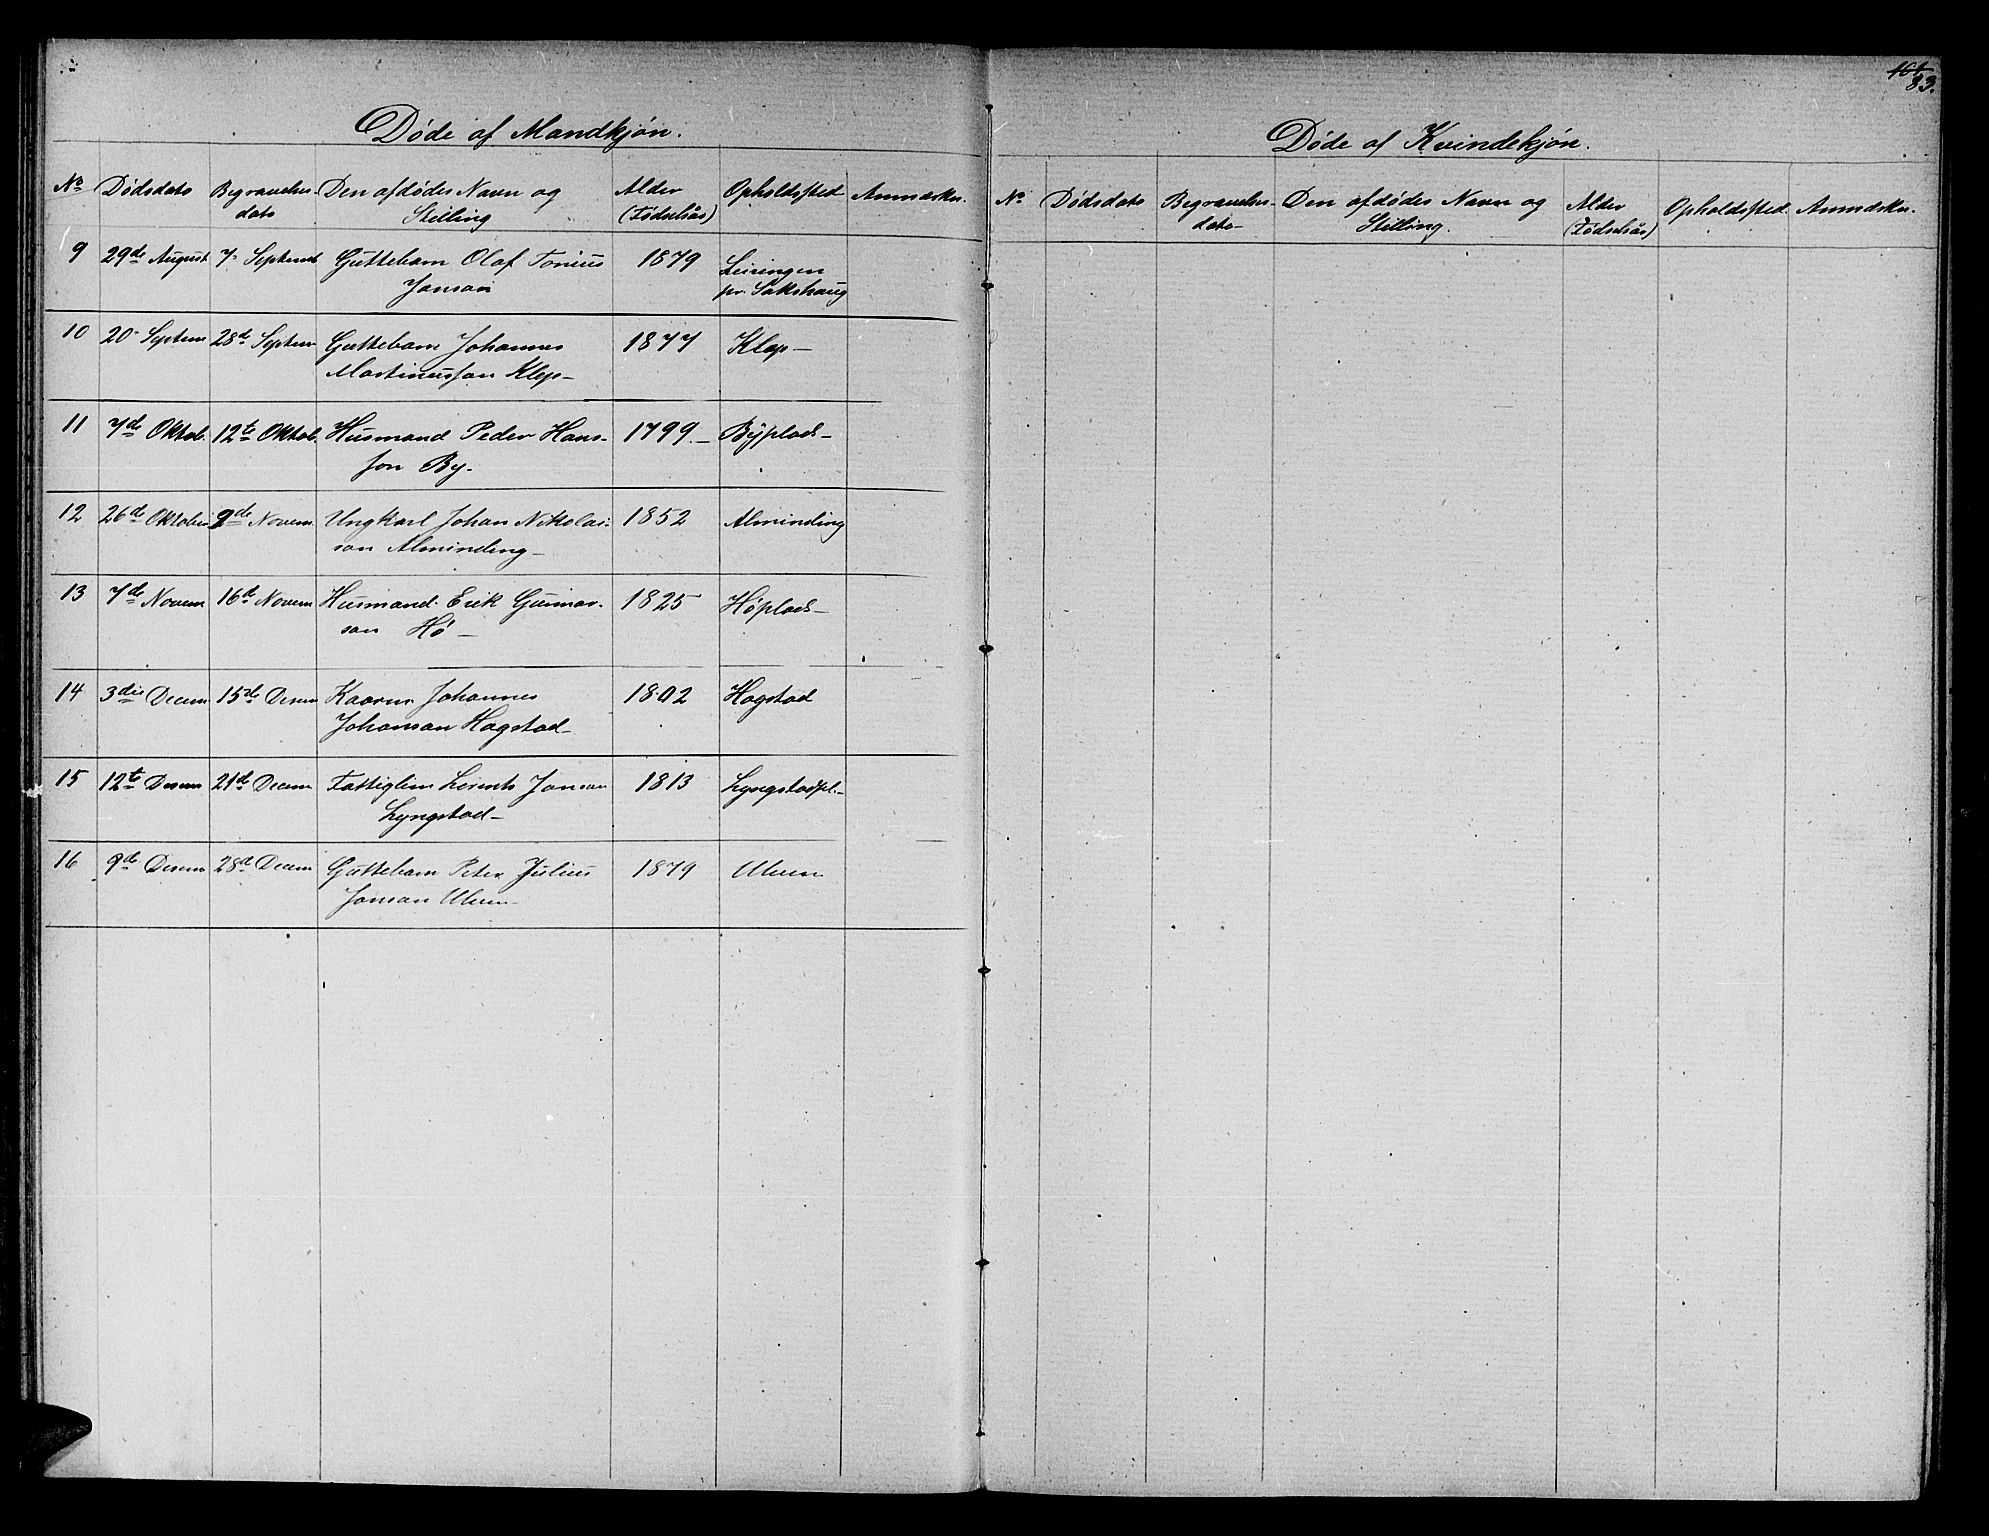 Døde af Mandkjøn.
No Dødsdato Begravelses- dato Den afdødes Navn og Stilling Alder (Fødselsår) Opholdssted Anmærkn.
9 29de August 7. Septemb Guttebarn Olaf Tonius 1879 Leiringen
Janson pr. Sakshaug
10 20 Septem 28de Septem Guttebarn Johannes 1877 Klep-
Martinusson Klep-
11 7de Oktob. 12te Oktob. Husmand Peder Hans- 1799.- Byplads-
son By-
12 26de Oktober 9de Novem. Ungkarl Johan Nikolai- 1852 Alminding
son Alminding-
13 7de Novem 16de Novem Husmand Erik Gunnar- 1825 Høplads-
son Hø-
14 3die Decem 15de Desem Kaarm. Johannes 1802 Hagstad
Johanson Hagstad-
15 12te Desem 21de Decem Fattiglem Lorents Janson 1813 Lyngstadpl.-
Lyngstad-
16 9de Desem 28de Decem Guttebarn Peter Julius 1879 Ulven
Janson Ulven-
101
83.
Døde af Kvindekjøn.
No Dødsdato Begravelses- dato- Den afdødes Navn og Stilling. Alder (Fødselsår) Opholdssted Anmærkn.